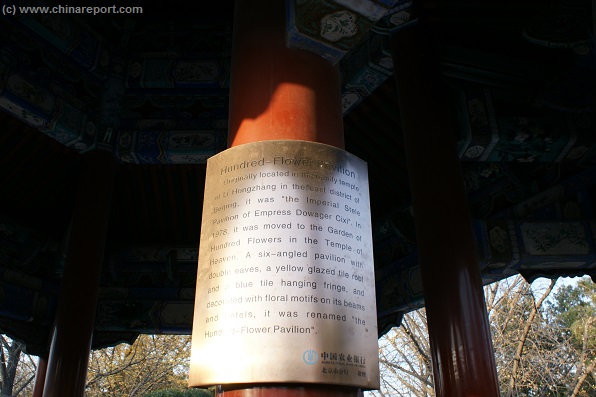 (c) www.chinareport.com
Hundred-Flower Pavilion
Originally located in the family temple
of Li Hongzhang in the East district of
Beijing, it was "the Imperial Stele
Pavilion of Empress Dowager Cixi". In
1978, it was moved to the Garden of
Hundred Flowers in the Temple of
Heaven. A six-angled pavilion with
double eaves, a yellow glazed tile roof
and a blue tile hanging fringe, and
decorated with floral motifs on its beams
and lintels, it was renamed "the
Hundred-Flower Pavilion".
中国农业银行